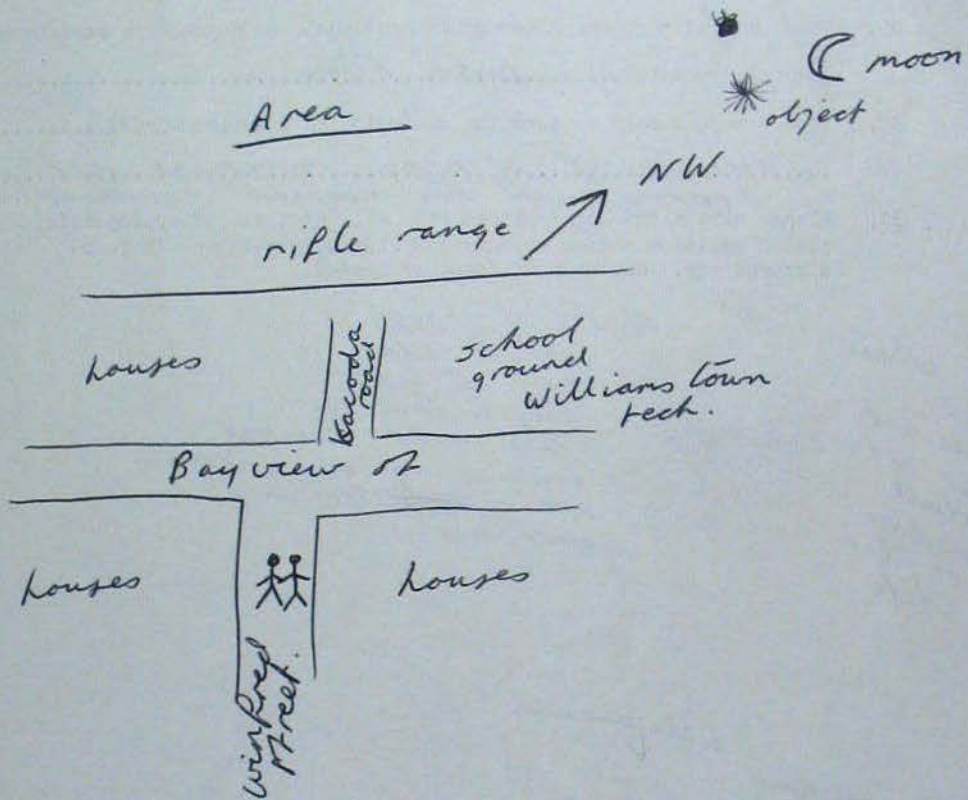 moon
object
Area
NW
rifle range
houses
Kacoda
road
school
ground
Williams town
tech.
Bayview st
houses
houses
Winifred
street.